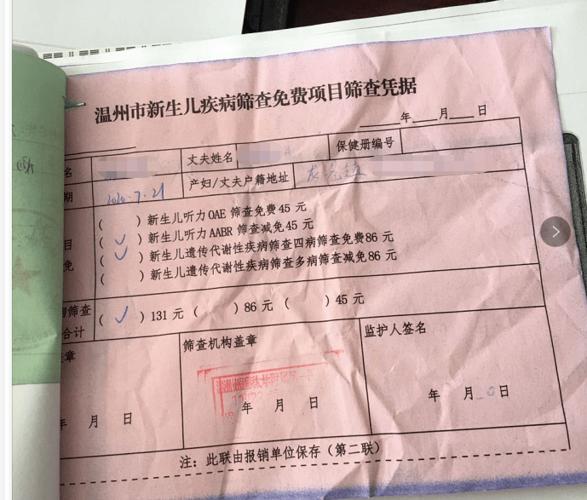 温州市新生儿疾病筛查免费项目筛查凭据
年 月 日
名 丈夫姓名 保健册编号
期 2020.7.21 产妇/丈夫户籍地址
( )新生儿听力OAE 筛查免费45元
目 (✓)新生儿听力AABR 筛查减免45元
免 (✓)新生儿遗传代谢性疾病筛查四病筛查免费86元
( )新生儿遗传代谢性疾病筛查多病筛查减免86元
筛查
合计 (✓)131元 ( )86元 ( )45元
章 筛查机构盖章 监护人签名
年 月 日 年 月 日 年 月 日
注：此联由报销单位保存（第二联）